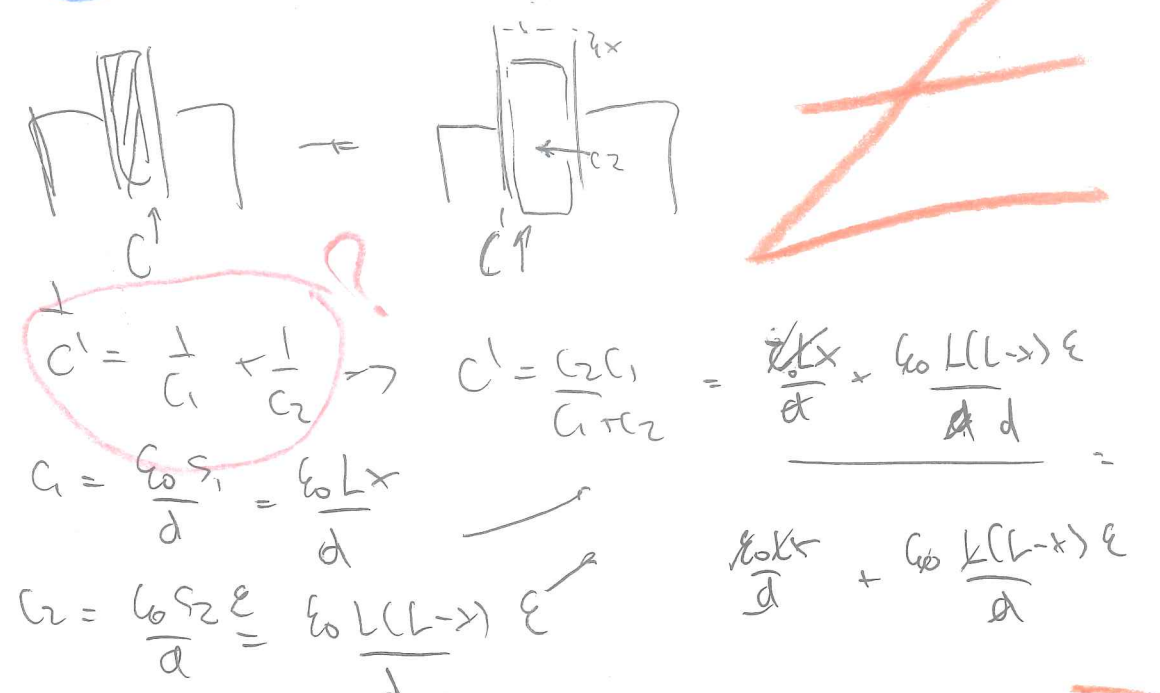 x
C2
C
C
?
1
C' = 1/C1 + 1/C2 → C' = C2C1/(C1+C2) = (ε0Lx/d × ε0L(L-x)ε/d)/(ε0Lx/d + ε0L(L-x)ε/d) =
C1 = ε0S1/d = ε0Lx/d
C2 = ε0S2ε/d = ε0L(L-x)/d ε